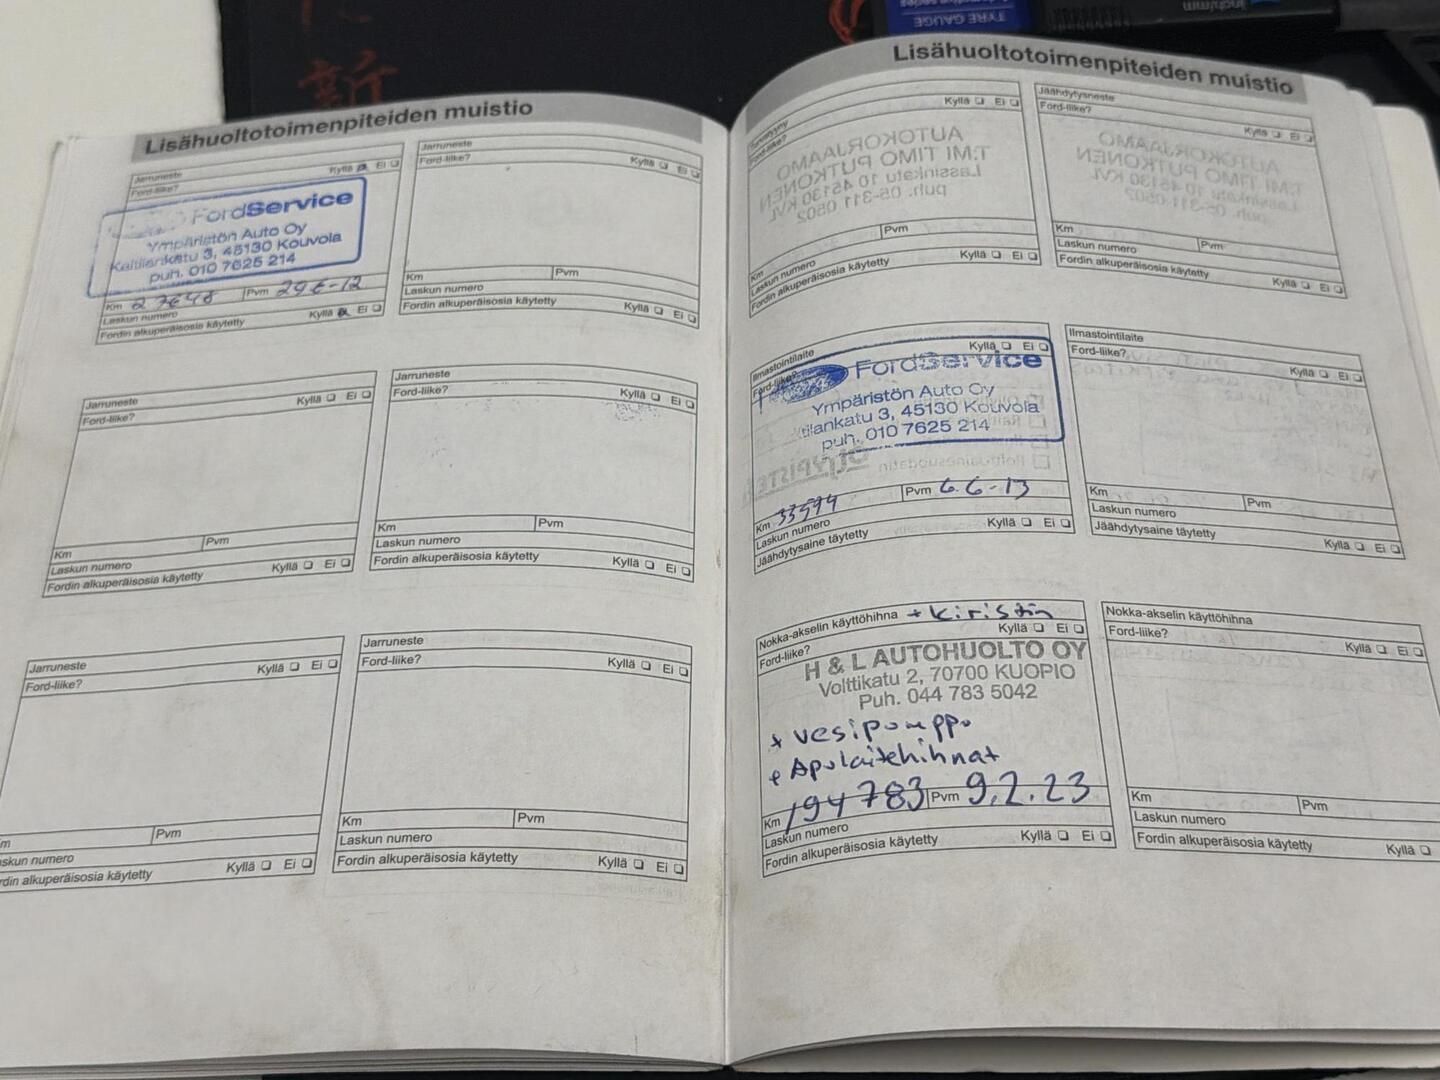 TYRE GAUGE
inch/mm
Lisähuoltotoimenpiteiden muistio
Jarruneste
Kyllä Ei
Ford-liike?
FordService
Ympäristön Auto Oy
Kaltilankatu 3, 45130 Kouvola
puh. 010 7625 214
Km 27648 Pvm 29.6-12
Laskun numero
Kyllä Ei
Fordin alkuperäisosia käytetty
Jarruneste
Ford-liike?
Kyllä Ei
Km Pvm
Laskun numero
Fordin alkuperäisosia käytetty
Kyllä Ei
Jarruneste
Ford-liike?
Kyllä Ei
Km Pvm
Laskun numero
Fordin alkuperäisosia käytetty
Kyllä Ei
Jarruneste
Ford-liike?
Kyllä Ei
Km Pvm
Laskun numero
Fordin alkuperäisosia käytetty
Kyllä Ei
Jarruneste
Ford-liike?
Kyllä Ei
Km Pvm
Laskun numero
Fordin alkuperäisosia käytetty
Kyllä Ei
Jarruneste
Ford-liike?
Kyllä Ei
Km Pvm
Laskun numero
Fordin alkuperäisosia käytetty
Kyllä Ei
Lisähuoltotoimenpiteiden muistio
Turvatyyny
Ford-liike?
Kyllä Ei
AUTOKORJAAMO
T:MI TIMO PUTKONEN
Lassinkatu 10 45130 KVL
puh. 05-311 0502
Km Pvm
Laskun numero
Fordin alkuperäisosia käytetty
Kyllä Ei
Jäähdytysneste
Ford-liike?
Kyllä Ei
AUTOKORJAAMO
T:MI TIMO PUTKONEN
Lassinkatu 10 45130 KVL
puh. 05-311 0502
Km Pvm
Laskun numero
Fordin alkuperäisosia käytetty
Kyllä Ei
Ilmastointilaite
Ford-liike?
Kyllä Ei
FordService
Ympäristön Auto Oy
tilankatu 3, 45130 Kouvola
puh. 010 7625 214
Km 33594 Pvm 6.6-13
Laskun numero
Jäähdytysaine täytetty
Kyllä Ei
Ilmastointilaite
Ford-liike?
Kyllä Ei
Km Pvm
Laskun numero
Jäähdytysaine täytetty
Kyllä Ei
Nokka-akselin käyttöhihna + kiristin
Ford-liike?
Kyllä Ei
H & L AUTOHUOLTO OY
Volttikatu 2, 70700 KUOPIO
Puh. 044 783 5042
+ vesipumppu
+ Apulaitehihnat
Km 194783 Pvm 9.2.23
Laskun numero
Fordin alkuperäisosia käytetty
Kyllä Ei
Nokka-akselin käyttöhihna
Ford-liike?
Kyllä Ei
Km Pvm
Laskun numero
Fordin alkuperäisosia käytetty
Kyllä